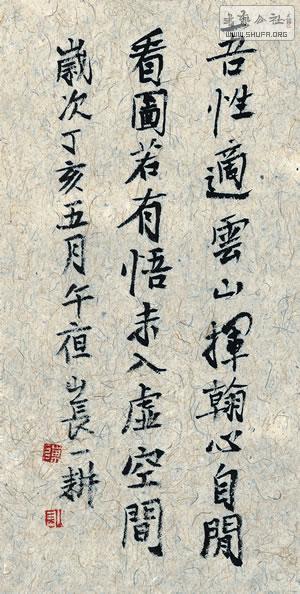 吾性適雲山揮翰心自閒
看圖若有悟未入虛空間
歲次丁亥五月午夜山長一耕
书艺公社
WWW.SHUFA.ORG